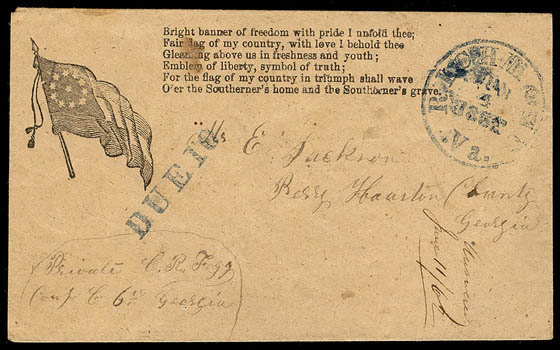 Bright banner of freedom with pride I unfold thee;
Fair flag of my country, with love I behold thee
Gleaming above us in freshness and youth;
Emblem of liberty, symbol of truth;
For the flag of my country in triumph shall wave
O'er the Southerner's home and the Southerner's grave.
RICHMOND
MAY
4
1862
Va.
DUE 10
E. Jackson
Perry Houston County
Georgia
June 11/62
Private C. R. Fogg
C 6th Georgia